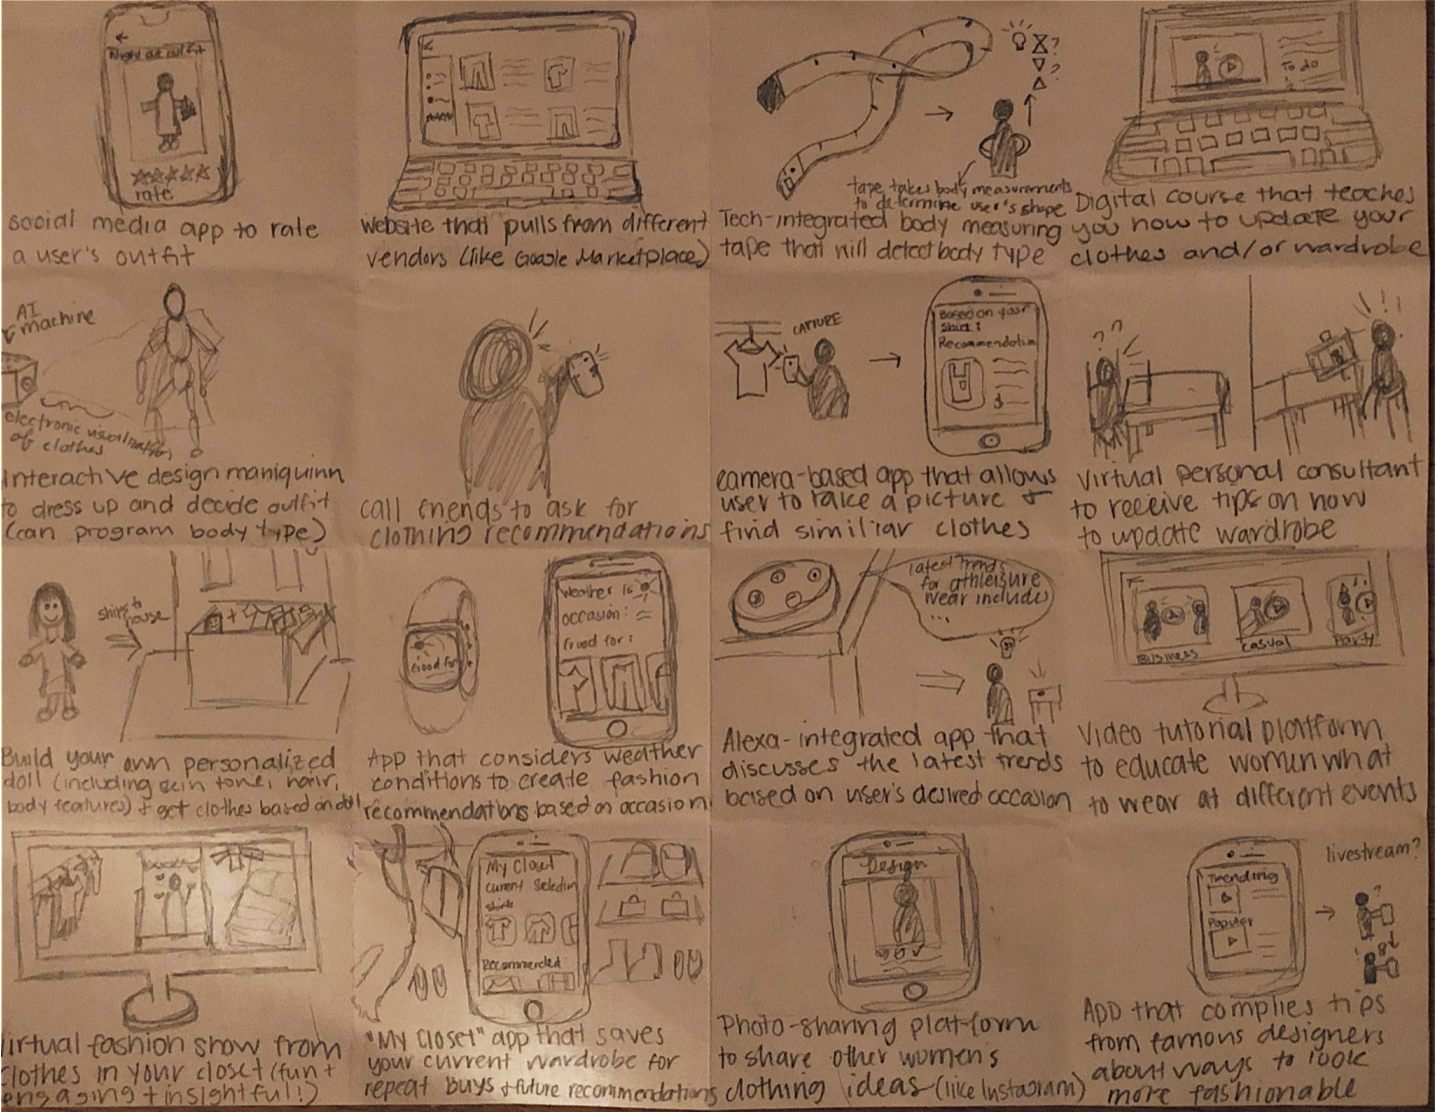 Night out outfit
rate
social media app to rate
a user's outfit
Website that pulls from different
vendors (like Google Marketplace)
?
?
tape takes body measurements
to determine user's shape
Tech-integrated body measuring
tape that will detect body type
To do
Digital course that teaches
you how to update your
clothes and/or wardrobe
AI
machine
electronic visualization
of clothes
Interactive design maniquinn
to dress up and decide outfit
(can program body type)
call friends to ask for
clothing recommendations
CAPTURE
Based on your
shirt:
Recommendation
$
camera-based app that allows
user to take a picture &
find similiar clothes
??
!!
Virtual personal consultant
to receive tips on how
to update wardrobe
ships to
house
Build your own personalized
doll (including skin tone, hair,
body features) & get clothes based on doll
Good for
Weather is
occasion:
Good for:
App that considers weather
conditions to create fashion
recommendations based on occasion
latest trends
for athleisure
wear includes
...
Alexa-integrated app that
discusses the latest trends
based on user's desired occasion
Business
Casual
Party
Video tutorial platform
to educate women what
to wear at different events
Virtual fashion show from
clothes in your closet (fun +
engaging + insightful!)
My Closet
Current Selection
Shirts
Recommended
"My Closet" app that saves
your current wardrobe for
repeat buys & future recommendations
Design
Photo-sharing platform
to share other women's
clothing ideas (like Instagram)
Trending
Popular
livestream?
?
App that complies tips
from famous designers
about ways to look
more fashionable